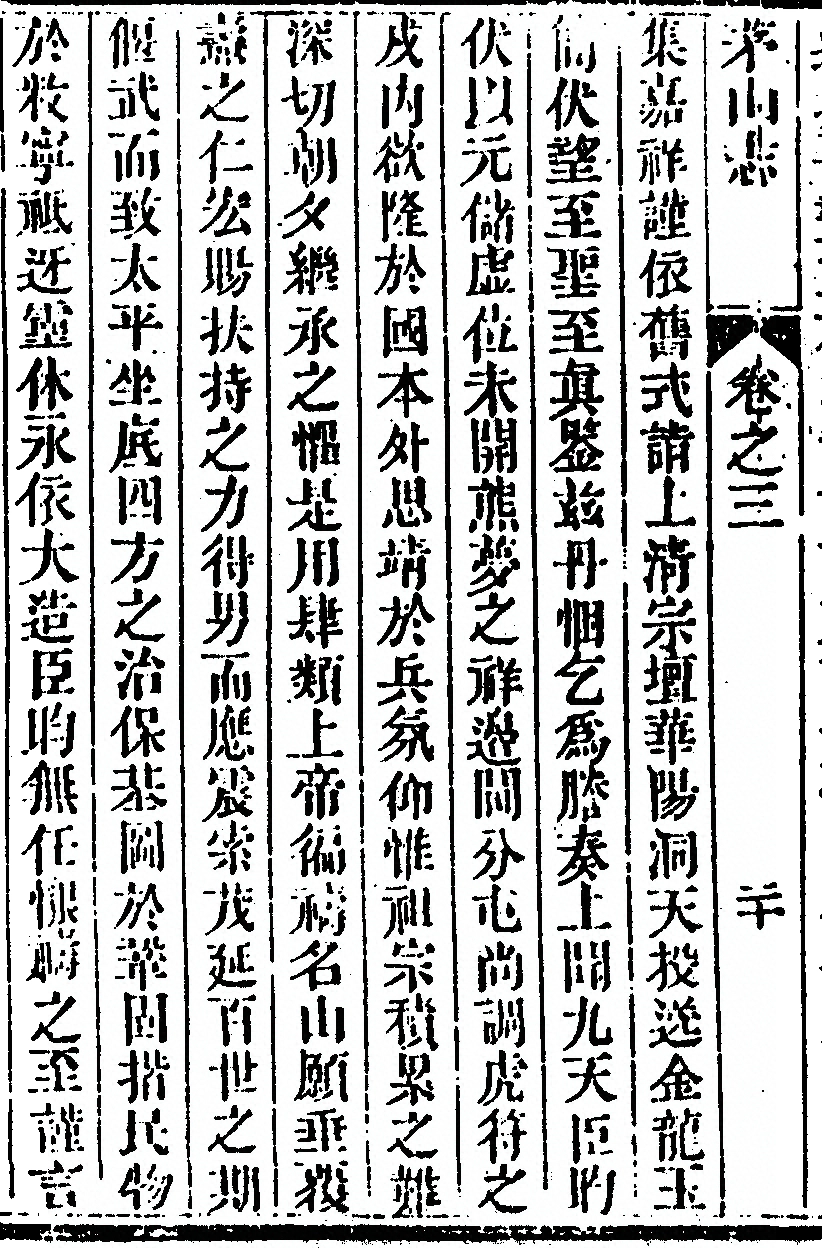 茅山志 卷之三 二十
集嘉祥謹依舊式請上清宗壇華陽洞天投送金龍玉
簡伏望至聖至眞鑒玆丹悃乞爲騰奏上聞九天臣昀
伏以元儲虛位未開熊夢之祥邊閫分屯尚調虎符之
戍內欲隆於國本外思靖於兵氛仰惟祖宗積累之難
深切朝夕繼承之懼是用肆類上帝徧禱名山願垂覆
燾之仁宏賜扶持之力得男而應震索茂延百世之期
偃武而致太平坐底四方之治保基圖於鞏固措民物
於敉寧祗迓靈休永依大造臣昀無任懇禱之至謹言